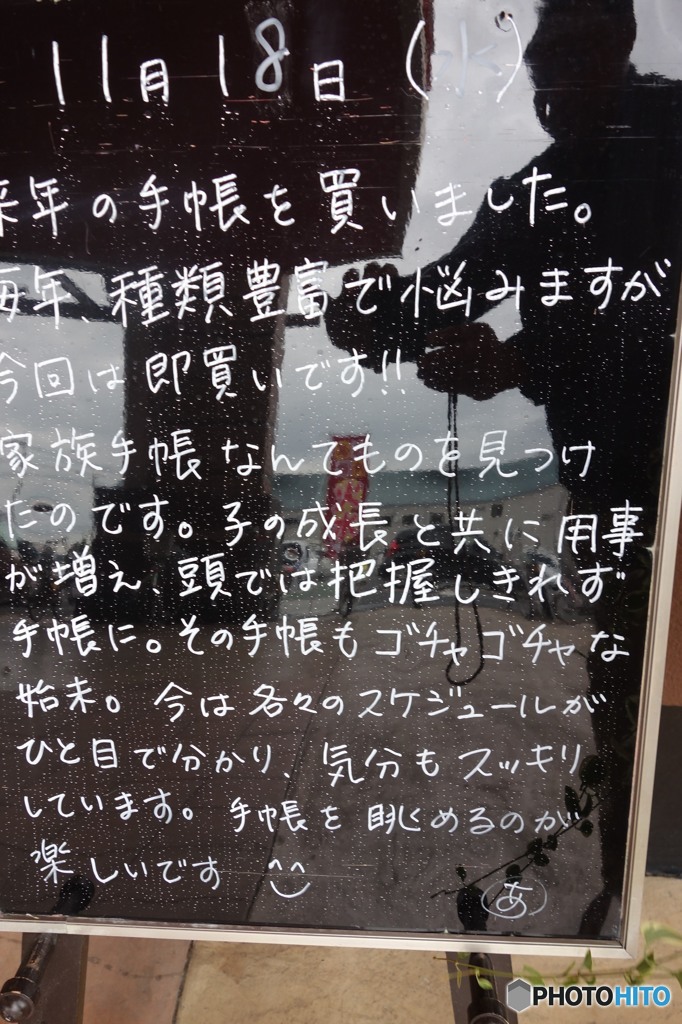 11月18日(水)
来年の手帳を買いました。
毎年、種類豊富で悩みますが
今回は即買いです!!
家族手帳なんてものを見つけ
たのです。子の成長と共に用事
が増え、頭では把握しきれず
手帳に。その手帳もゴチャゴチャな
始末。今は各々のスケジュールが
ひと目で分かり、気分もスッキリ
しています。手帳を眺めるのが
楽しいです
あ
PHOTOHITO